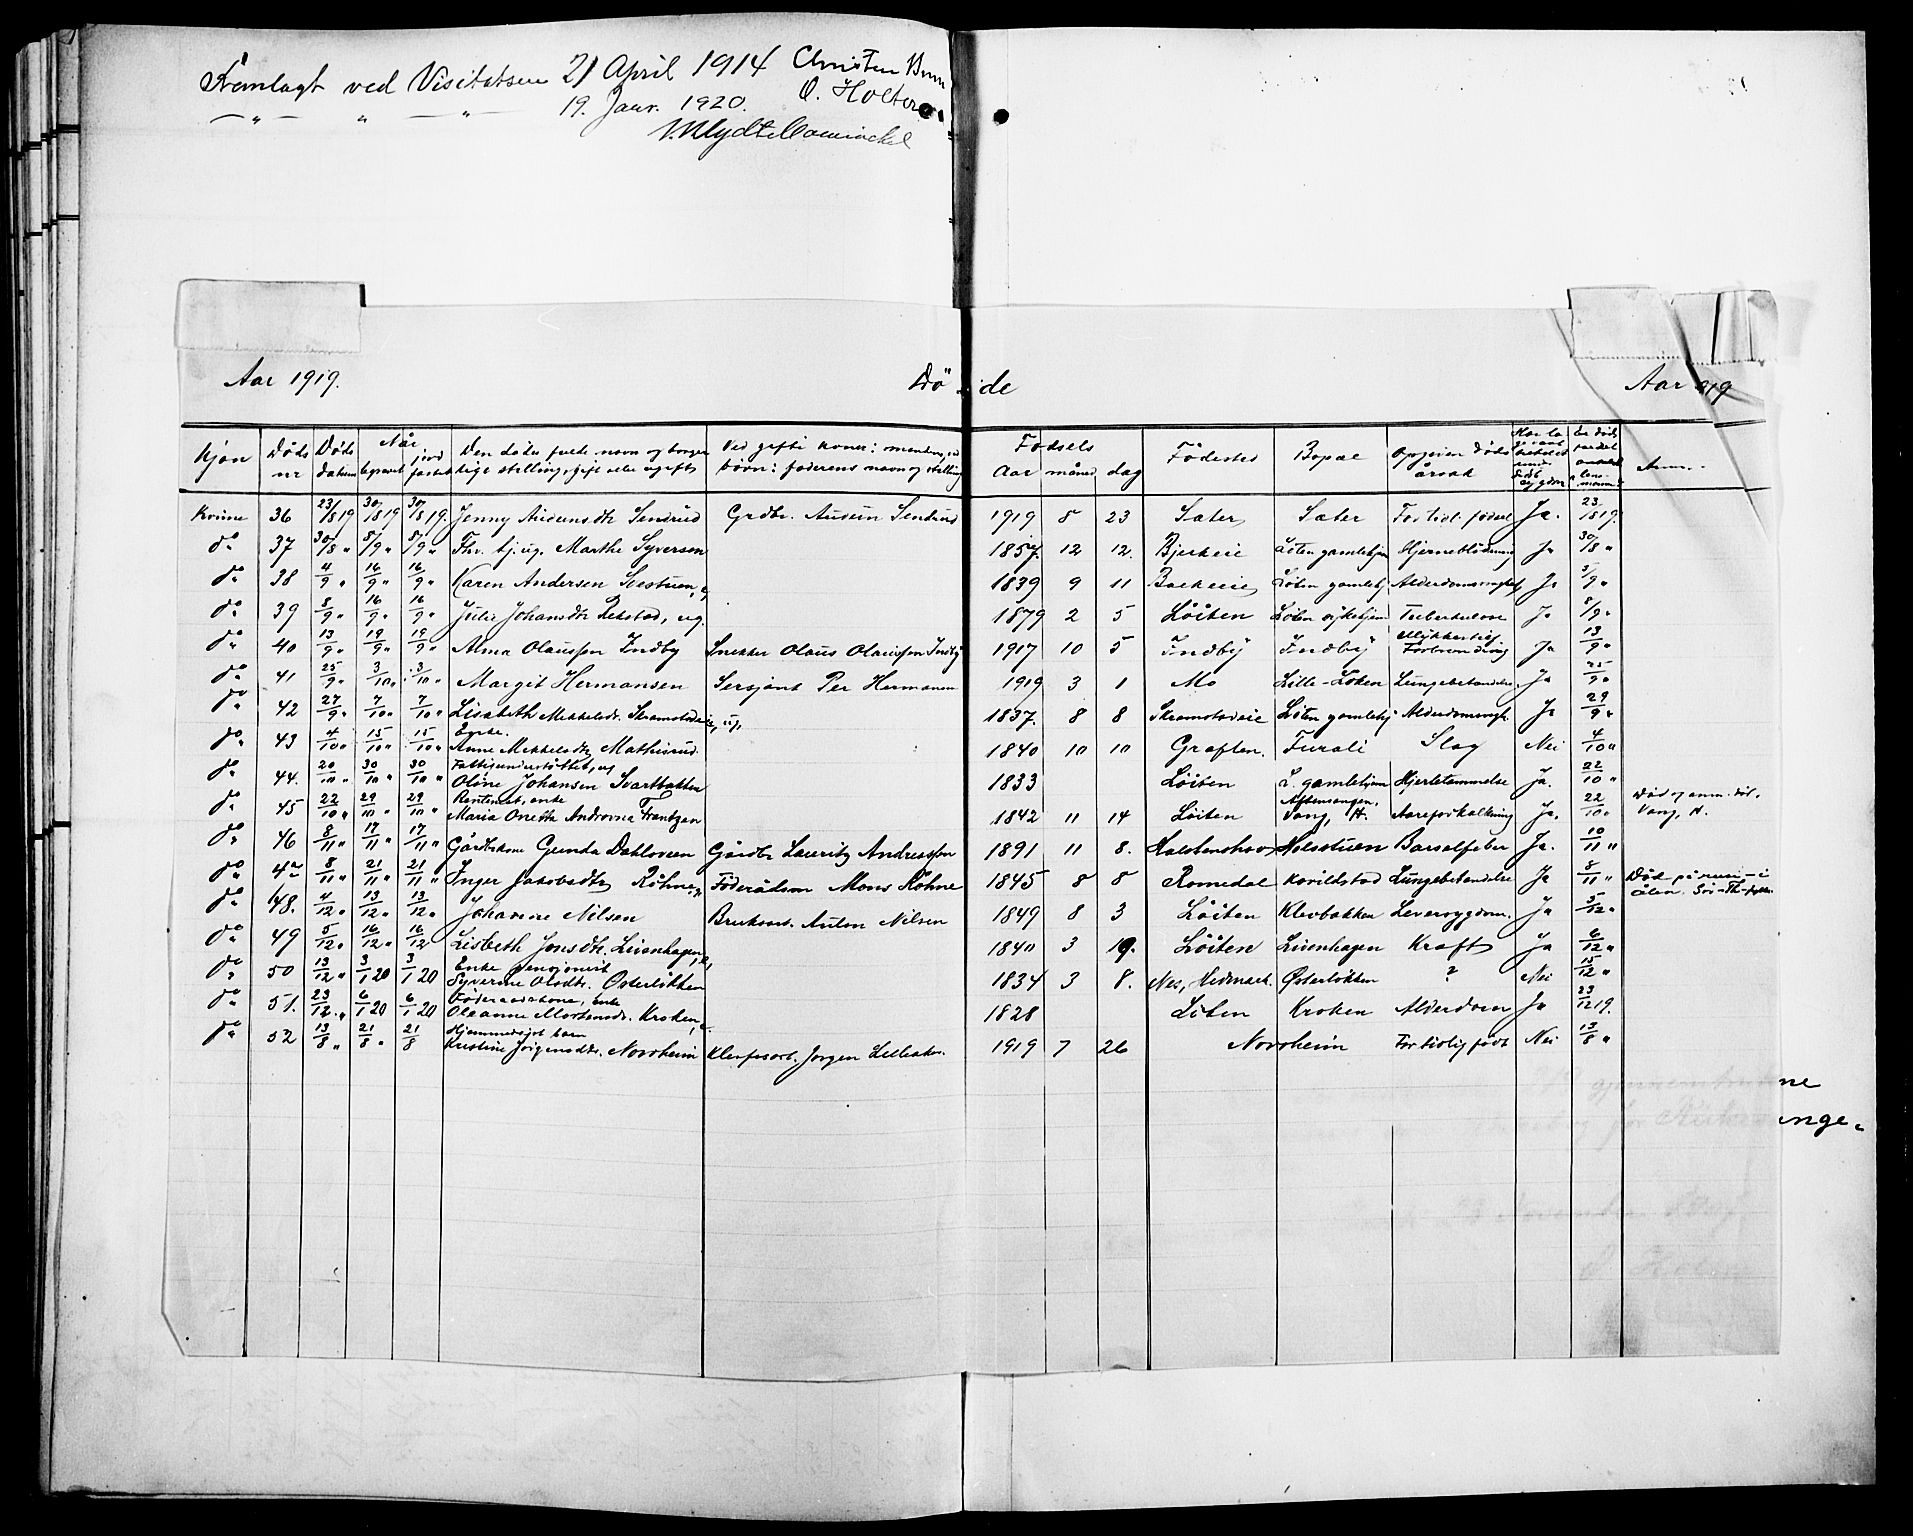 Fremlagt ved Visitatsen 21 April 1914 Christen
— „ — „ — „ — 19. Janr. 1920. O. Holter
Aar 1919. Døde Aar 1919
Kjøn Døds nr Døds datum Når begravet jord fæstet Den dødes fulde navn og borger lige stilling, gift eller ugift Ved gifte koner: mandens, ved børn: faderens navn og stilling Fødsels Aar måned dag Fødested Bopæl Opgiven døds årsak Anm.
Kvinne 36 23/8 19 30/8 19 30/8 19. Jenny Audensdtr Sendrud Grdbr. Auden Sendrud 1919 8 23 Sæter Sæter For tidl. født Ja. 23/8 19.
do 37 30/8 „ 8/9 „ 8/9 „ Fhv. tj. ug. Marthe Syversen 1857. 12 12. Bjerkeie Löten gamlehjem Hjerneblödning Ja 30/8 „
do 38 4/9 „ 16/9 „ 16/9 „ Karen Andersen 1839 9 11 Bakkeeie Löten gamlehj. Ja 5/9 „
do 39 8/9 „ 16/9 „ 16/9 „ Julie Johansdtr Rekstad, ug. 1879 2 5 Löiten Löten sykehjem Tuberkulose Ja 8/9 „
do 40 13/9 „ 19/9 „ 19/9 „ Alma Olaussen Indby Snekker Olaus Olaussen Indby 1917 10 5 Indby Indby Ulykkestilf. Forbrending Ja 13/9 „
do 41 25/9 „ 3/10 „ 3/10 „ Margit Hermansen Sersjant Per Hermansen 1919 3 1 Mo Lille-Löken Lungebetendelse Ja 25/9 „
do 42 27/9 „ 7/10 „ 7/10 „ Lisabeth Mekkelsdtr. Skramstadeie, ug. 1837. 8 8 Skramstadeie Löten gamlehj. Alderdomssvagh. Ja 29/9 „
do 43 4/10 „ 15/10 „ 15/10 „ Enke. Anne Mekkelsdtr Mathisrud. 1840 10 10 Graften. Furali Slag Nei 4/10 „
do 44. 20/10 „ 30/10 „ 30/10 „ Fattigunderstöttet, ug Oline Johansen Svartbakken 1833 Löiten L. gamlehjem Hjertelammelse Ja. 22/10 „
do 45 22/10 „ 29/10 „ 29/10 „ Rentenist, enke Maria Onette Androvne Frantzen 1842 11 14 Löiten Aftensangen, Vang, H. Aareforkalkning Ja. 22/10 „ Död og anm. död. Vang, H.
do 46 8/11 „ 17/11 „ 17/11 „ Gårdbr.kone Gunda Dahlsveen Gårdbr Lauritz Andreassen 1891 11 8. Holstenshov Holsstuen Barselfeber Ja. 10/11 „
do 47 8/11 „ 21/11 „ 21/11 „ Inger Jakobsdtr Röhne Föderådsm Mons Röhne 1845 8 8 Romedal Karildstad Lungebetendelse Ja 8/11 „ Död på reise i Ålen. Sör-Th. fylke
do 48. 4/12 „ 13/12 „ 13/12 „ Johanne Nilsen Bruksarb. Anton Nilsen 1849 8 3 Löiten Klevbakken Leversygdom. Ja 5/12 „
do 49 5/12 „ 16/12 „ 16/12 Lisbeth Jonsdtr. Leienhagen, e, 1840 3 19. Löiten Leienhagen Kræft Ja 6/12 „
do 50 13/12 „ 3/1 20 3/1 20 Enke pensjonist Syverine Olsdtr. Österlökken 1834 3 8. Nes, Hedmark Østerlökken ? Nei 15/12 „
do 51. 23/12 „ 6/1 20 6/1 20 Föderaadskone, enke Oleanne Mortensdr. Kroken, e. 1828 Löten Kroken Alderdom Ja 23/12 19.
do 52 13/8 „ 21/8 „ 21/8 Hjemmedøpt barn Kristine Jörgensdtr. Nordheim Jörgen 1919 7 26 Nordheim For tidlig födt Nei 13/8 „